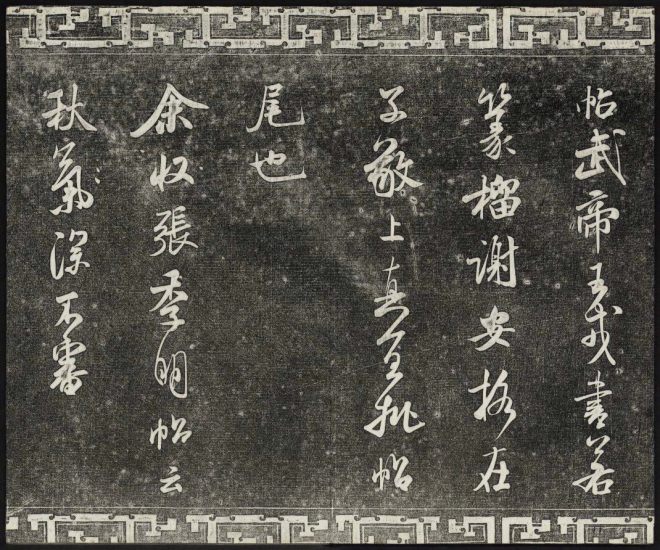 帖武帝王戎書若
篆榴謝安格在
子敬上真宜批帖
尾也
余收張季明帖云
秋氣深不審